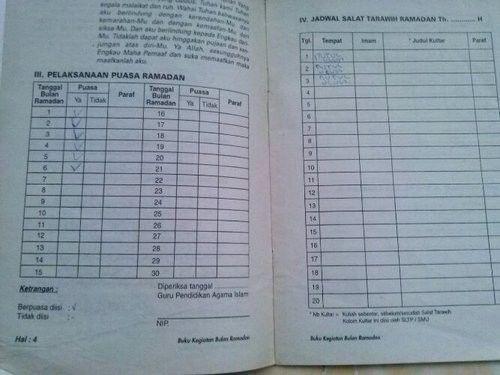 segala malaikat dan ruh. Wahai Tuhan
aku berlindung dengan keredhaan-Mu dari
kemarahan-Mu dan dengan kemaafan-Mu dari
siksa-Mu. Dan aku berlindung kepada Engkau dari-
Mu. Tidaklah dapat aku hinggakan pujaan dan
jungan atas diri-Mu. Ya Allah, sesungguhnya
Engkau Maha Pemaaf dan suka memaafkan maka
maafkanlah aku.
III. PELAKSANAAN PUASA RAMADAN
Tanggal Bulan Ramadan Puasa Paraf Tanggal Bulan Ramadan Puasa Paraf
Ya Tidak Ya Tidak
1 √ 16
2 √ 17
3 √ 18
4 √ 19
5 √ 20
6 √ 21
7 22
8 23
9 24
10 25
11 26
12 27
13 28
14 29
15 30
Keterangan :
Berpuasa diisi : √
Tidak diisi : -
Diperiksa tanggal
Guru Pendidikan Agama Islam
NIP.
Hal : 4
Buku Kegiatan Bulan Ramadan
IV. JADWAL SALAT TARAWIH RAMADAN Th. ........... H
Tgl. Tempat Imam * Judul Kultar Paraf
1
2
3
4
5
6
7
8
9
10
11
12
13
14
15
16
17
18
19
20
* Nb Kultar = Kuliah sebentar, sebelum/sesudah Salat Tarawih
Kolom Kultar ini diisi oleh SLTP / SMU
Buku Kegiatan Bulan Ramadan